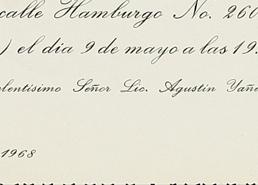 calle Hamburgo No. 260
) el dia 9 de mayo a las 19.
elentisimo Señor Lic. Agustin Yañe
1968